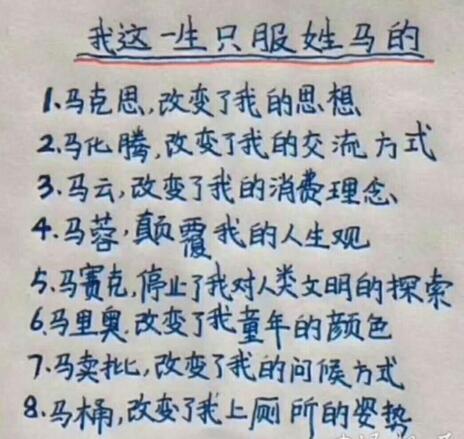 我这一生只服姓马的
1.马克思,改变了我的思想
2.马化腾,改变了我的交流方式
3.马云,改变了我的消费理念
4.马蓉,颠覆我的人生观
5.马赛克,停止了我对人类文明的探索
6.马里奥.改变了我童年的颜色
7.马卖批,改变了我的问候方式
8.马桶,改变了我上厕所的姿势